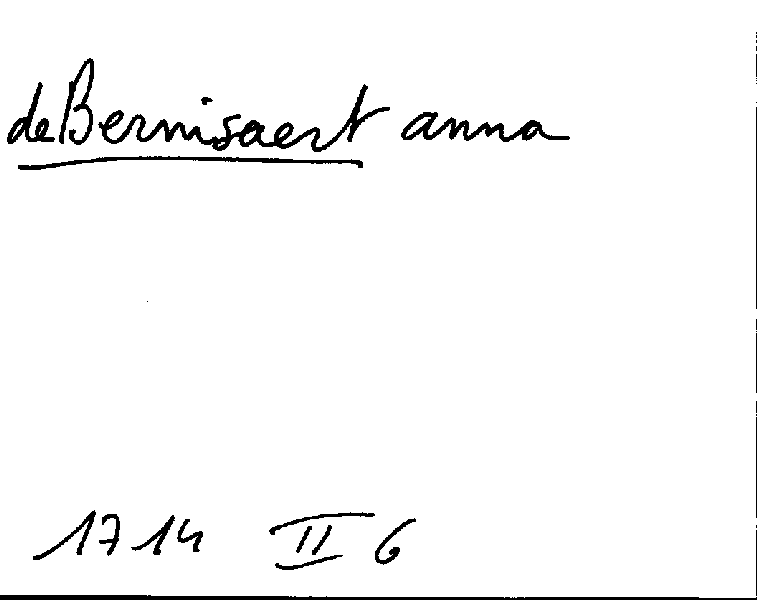 deBernisaert anna
1714 II 6